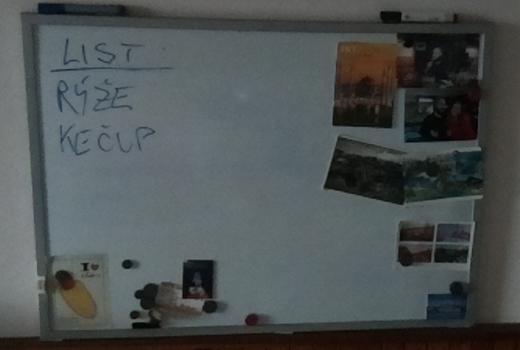 LIST
RÝŽE
KEČUP
I